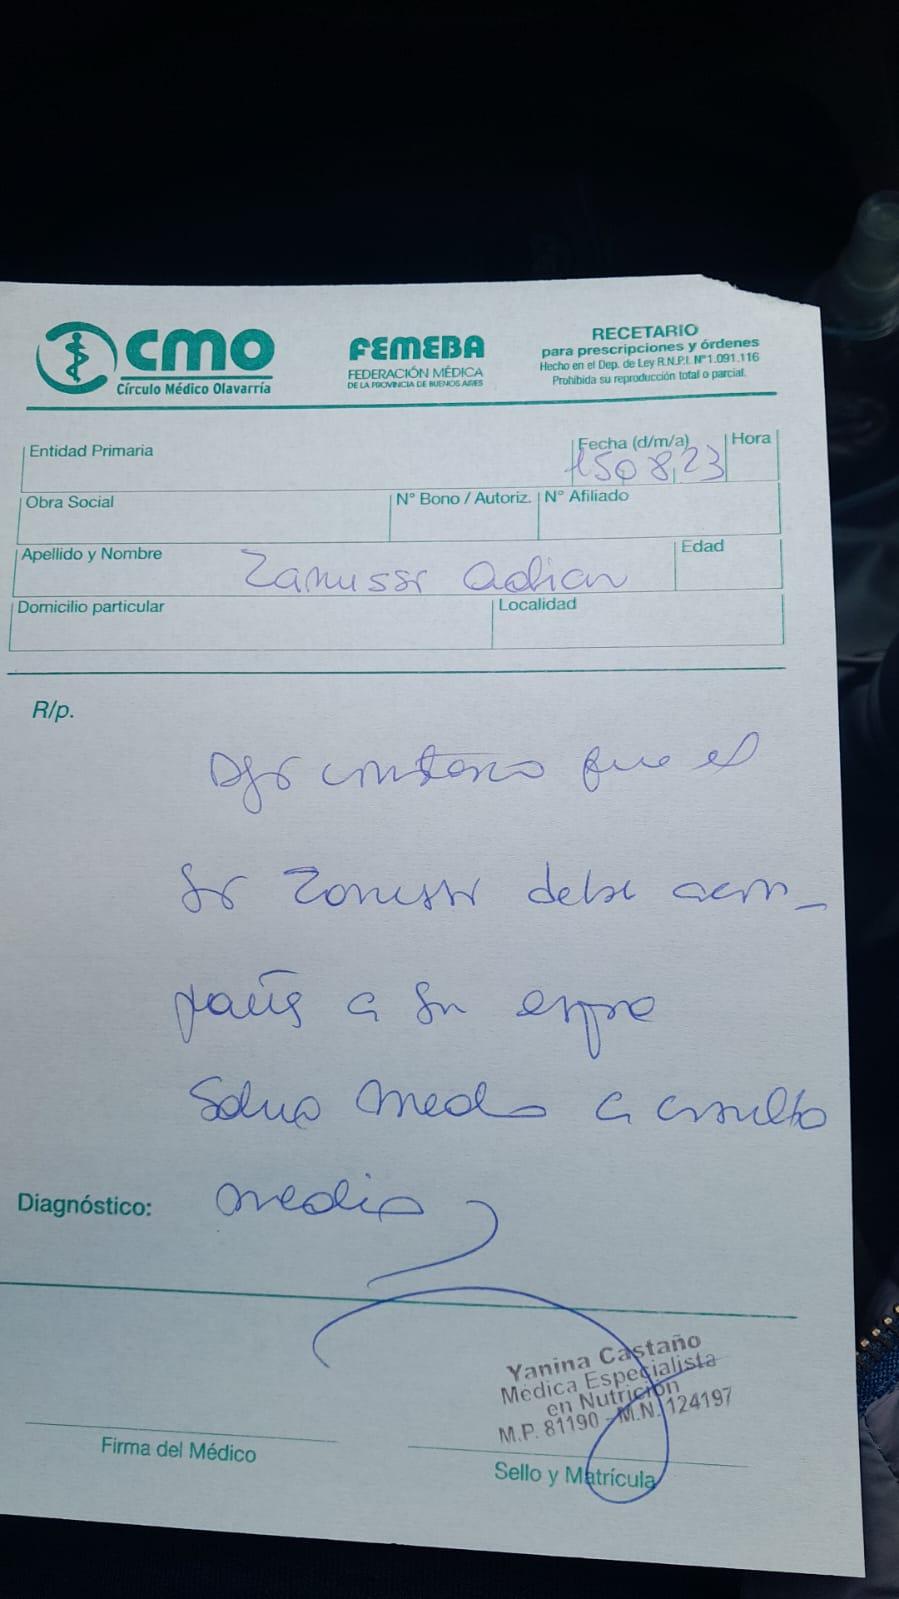 CMO
Círculo Médico Olavarría
FEMEBA
FEDERACIÓN MÉDICA
DE LA PROVINCIA DE BUENOS AIRES
RECETARIO
para prescripciones y órdenes
Hecho en el Dep. de Ley R.N.P.I. Nº 1.091.116
Prohibida su reproducción total o parcial.
Entidad Primaria
Fecha (d/m/a) Hora
150823
Obra Social
N° Bono / Autoriz. N° Afiliado
Apellido y Nombre Zanussi Adrian
Edad
Domicilio particular
Localidad
R/p.
Dejo constancia que el
Sr Zanussi debe acom-
pañar a su esposa
a consulta
Diagnóstico: medica
Yanina Castaño
Médica Especialista
en Nutrición
M.P. 81190 - M.N. 124197
Firma del Médico
Sello y Matrícula